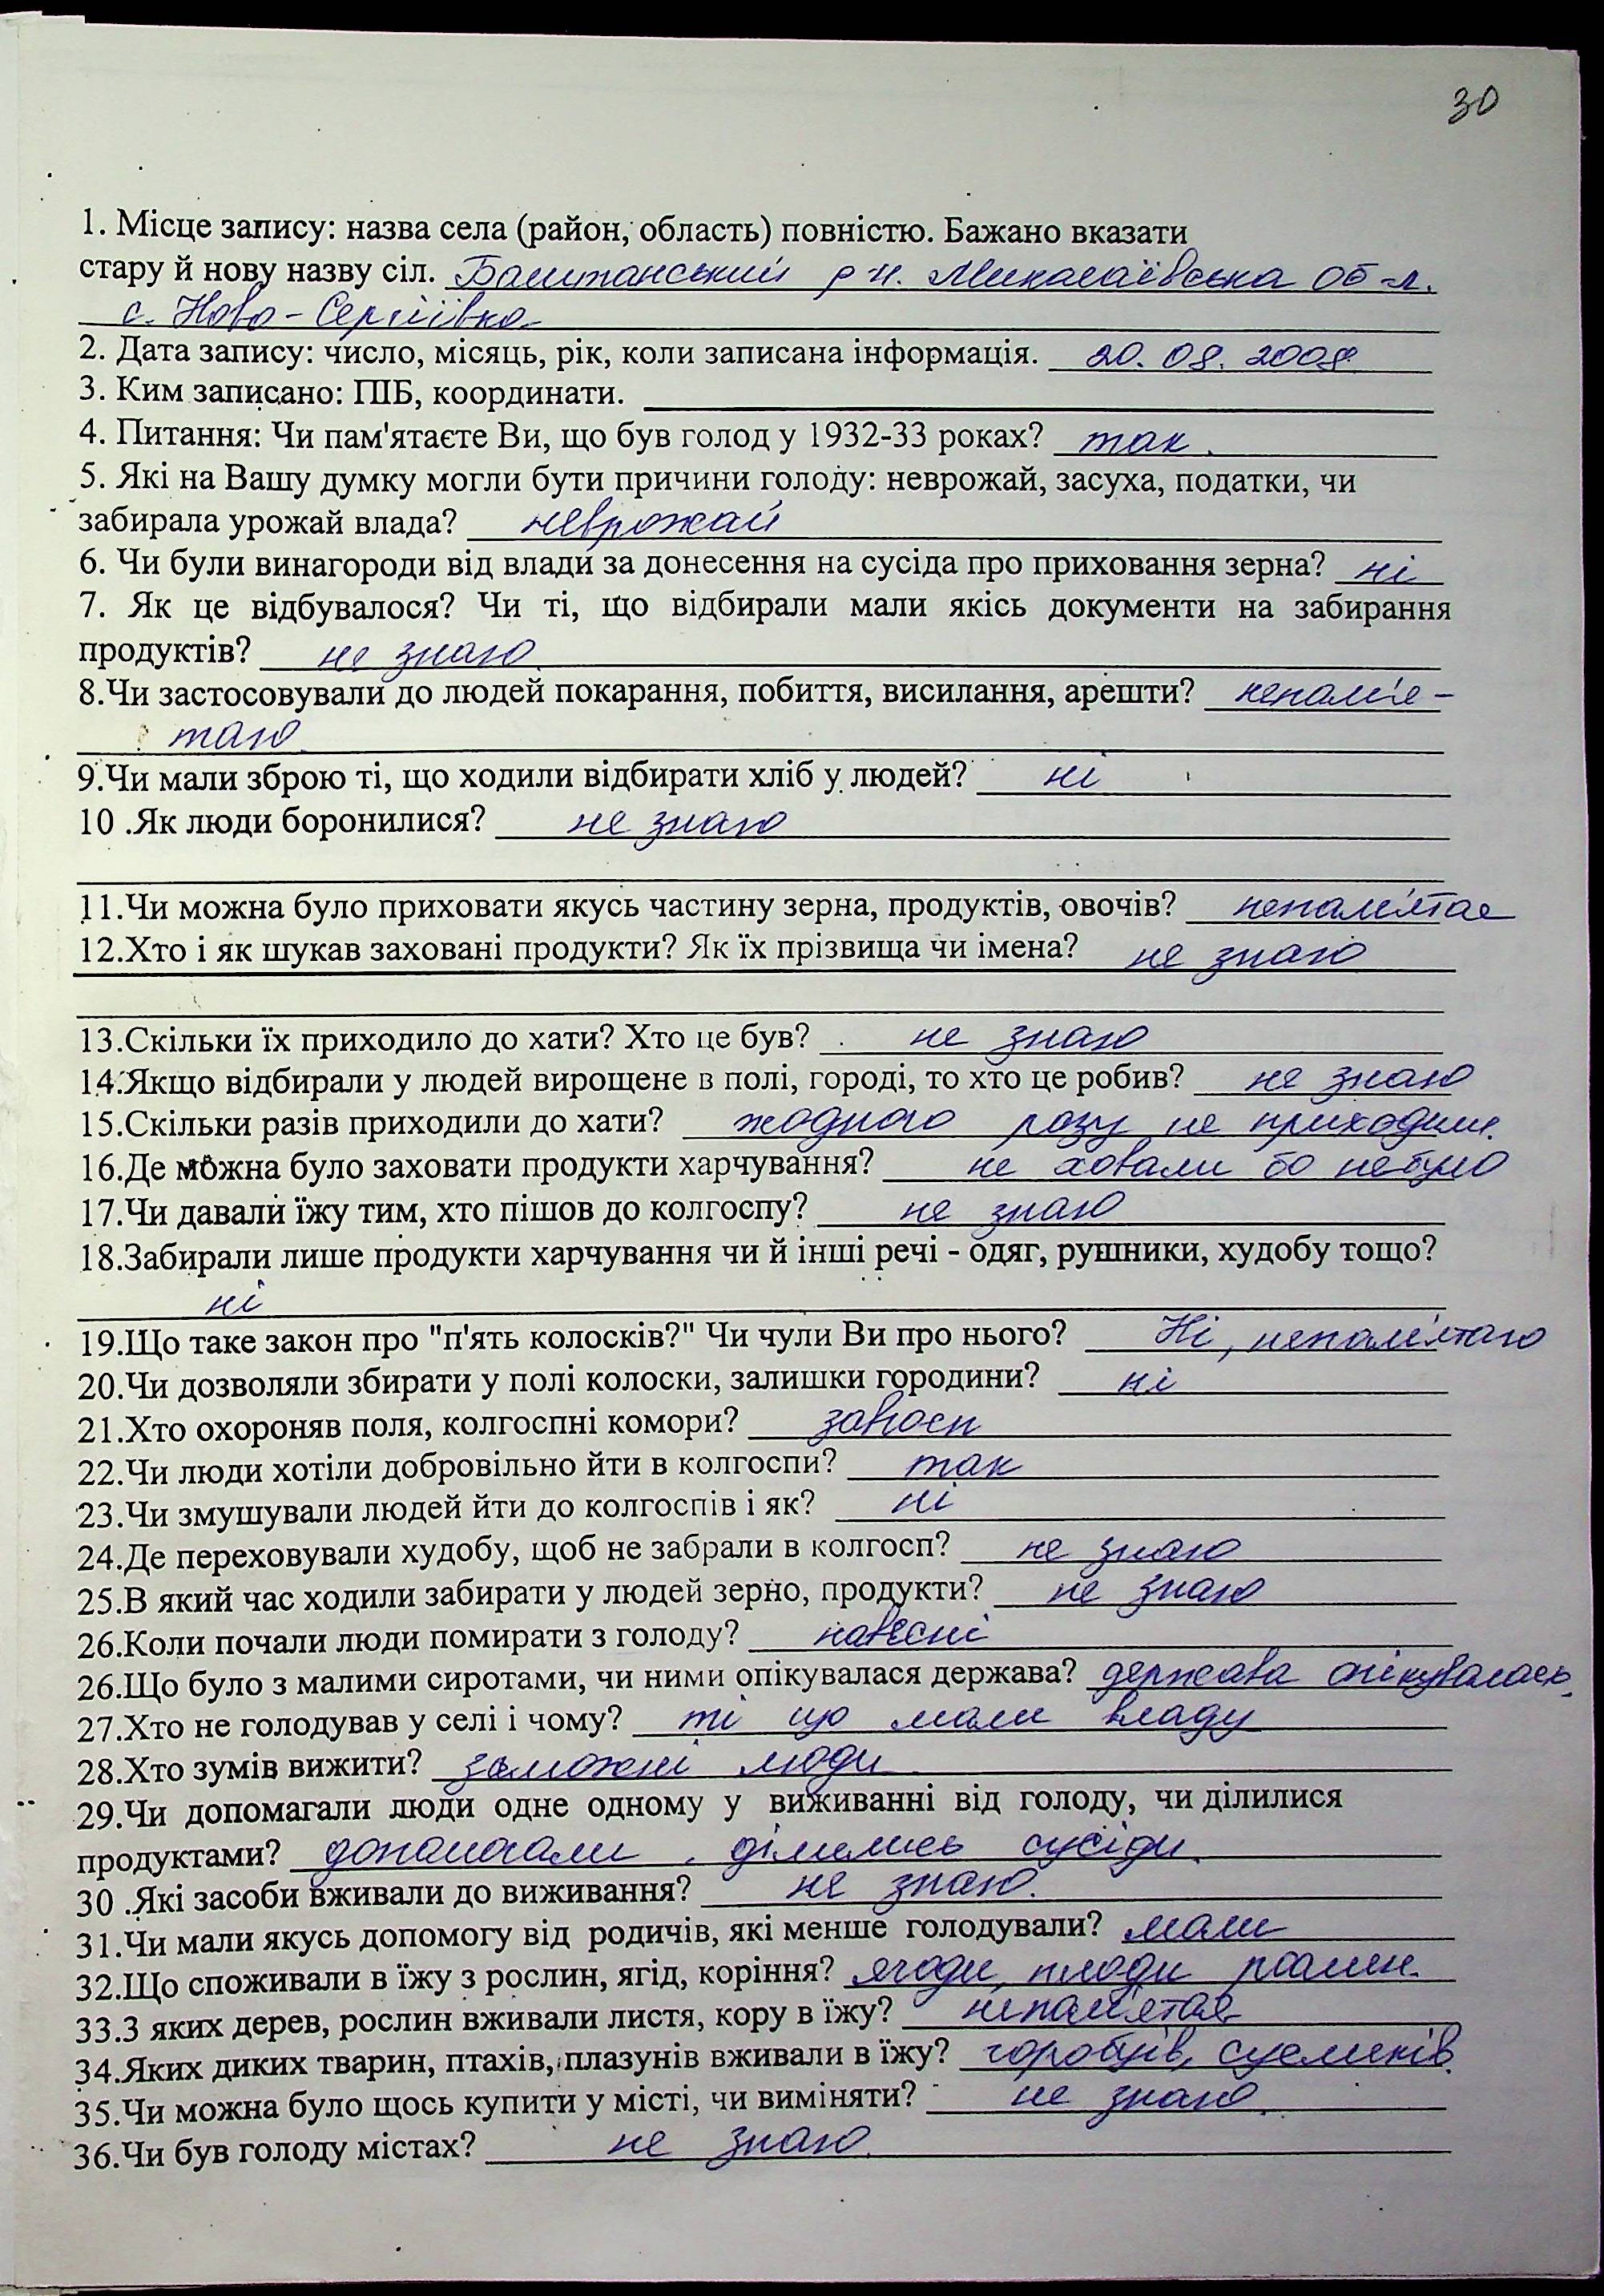 30
1. Місце запису: назва села (район, область) повністю. Бажано вказати
стару й нову назву сіл. Баштанський р-н. Миколаївська об-л.
с. Ново-Сергіївка
2. Дата запису: число, місяць, рік, коли записана інформація. 20.08.2008
3. Ким записано: ПІБ, координати.
4. Питання: Чи пам'ятаєте Ви, що був голод у 1932-33 роках? так.
5. Які на Вашу думку могли бути причини голоду: неврожай, засуха, податки, чи
забирала урожай влада? неврожай
6. Чи були винагороди від влади за донесення на сусіда про приховання зерна? ні
7. Як це відбувалося? Чи ті, що відбирали мали якісь документи на забирання
продуктів? не знаю.
8.Чи застосовували до людей покарання, побиття, висилання, арешти? непам'я-
таю.
9.Чи мали зброю ті, що ходили відбирати хліб у людей? ні
10 .Як люди боронилися? не знаю
11.Чи можна було приховати якусь частину зерна, продуктів, овочів? непам'ятає
12.Хто і як шукав заховані продукти? Як їх прізвища чи імена? не знаю
13.Скільки їх приходило до хати? Хто це був? не знаю
14.Якщо відбирали у людей вирощене в полі, городі, то хто це робив? не знаю
15.Скільки разів приходили до хати? жодного разу не приходили.
16.Де можна було заховати продукти харчування? не ховали бо небуло
17.Чи давали їжу тим, хто пішов до колгоспу? не знаю
18.Забирали лише продукти харчування чи й інші речі - одяг, рушники, худобу тощо?
ні
19.Що таке закон про "п'ять колосків?" Чи чули Ви про нього? Ні, непам'ятаю
20.Чи дозволяли збирати у полі колоски, залишки городини? ні
21.Хто охороняв поля, колгоспні комори?
22.Чи люди хотіли добровільно йти в колгоспи? так
23.Чи змушували людей йти до колгоспів і як? ні
24.Де переховували худобу, щоб не забрали в колгосп? не знаю
25.В який час ходили забирати у людей зерно, продукти? не знаю
26.Коли почали люди помирати з голоду? навесні
26.Що було з малими сиротами, чи ними опікувалася держава? держава опікувалась.
27.Хто не голодував у селі і чому? ті що мали владу
28.Хто зумів вижити? заможні люди.
29.Чи допомагали люди одне одному у виживанні від голоду, чи ділилися
продуктами? допомагали, ділились сусіди.
30 .Які засоби вживали до виживання? не знаю.
31.Чи мали якусь допомогу від родичів, які менше голодували? мали
32.Що споживали в їжу з рослин, ягід, коріння? ягоди, плоди рослин.
33.З яких дерев, рослин вживали листя, кору в їжу? непам'ятає
34.Яких диких тварин, птахів, плазунів вживали в їжу? горобців, сусликів.
35.Чи можна було щось купити у місті, чи виміняти? не знаю.
36.Чи був голоду містах? не знаю.